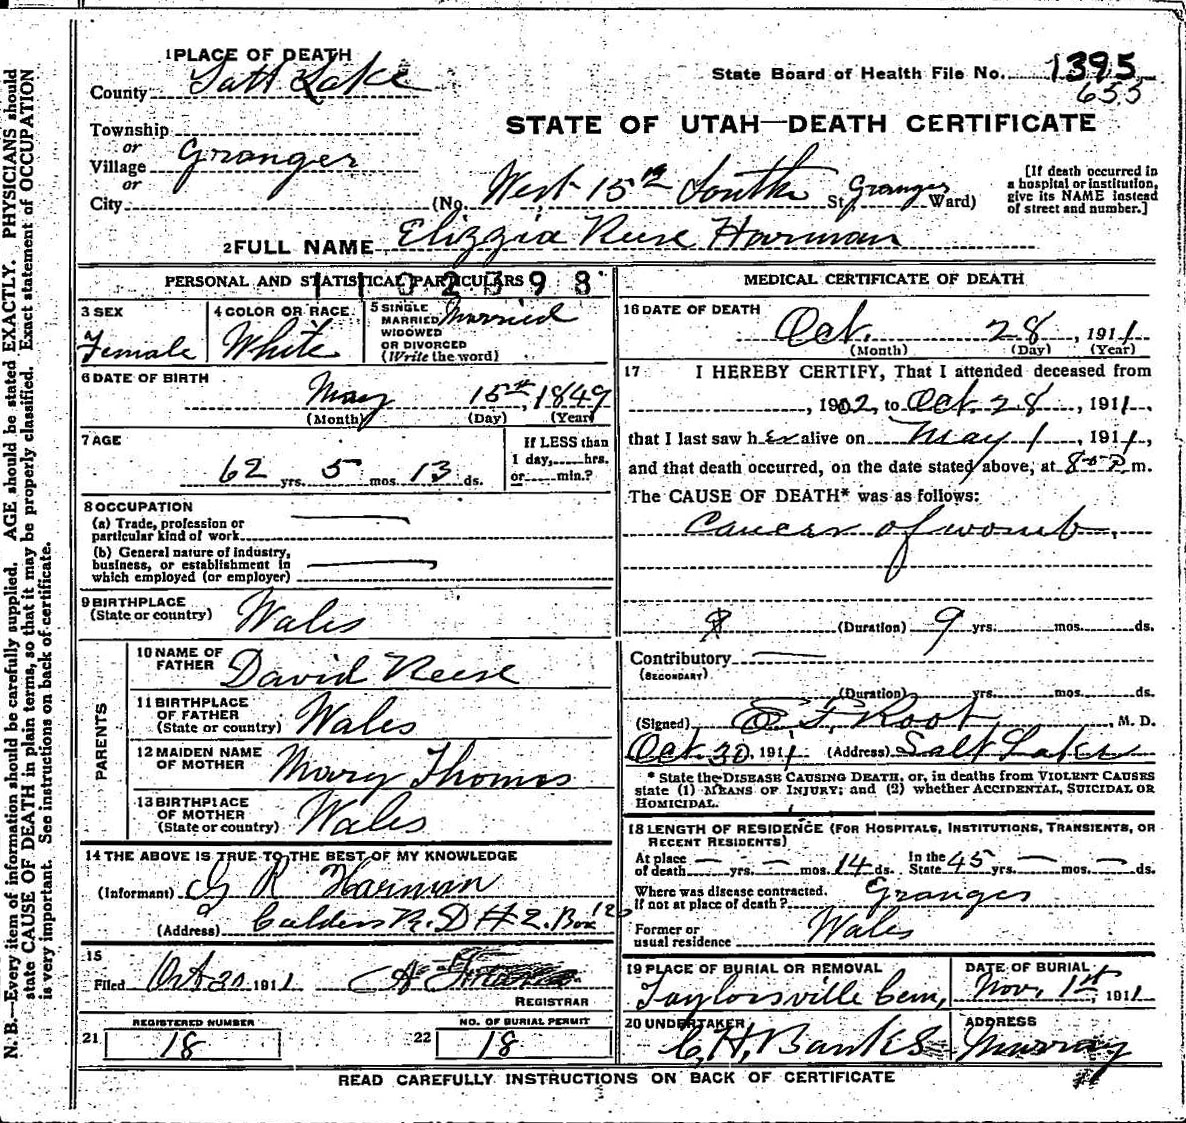 1 PLACE OF DEATH
County Salt Lake
State Board of Health File No. 1395
653
Township
or
Village Granger
or
City
STATE OF UTAH—DEATH CERTIFICATE
(No. West 15th South St. Granger Ward)
[If death occurred in a hospital or institution, give its NAME instead of street and number.]
2 FULL NAME Elizzia Reese Harman
PERSONAL AND STATISTICAL PARTICULARS
1102398
3 SEX
Female
4 COLOR OR RACE
White
5 SINGLE
MARRIED
WIDOWED
OR DIVORCED
(Write the word)
Married
6 DATE OF BIRTH
May 15th, 1849
(Month) (Day) (Year)
7 AGE
62 yrs. 5 mos. 13 ds.
If LESS than
1 day, hrs.
or min.?
8 OCCUPATION
(a) Trade, profession or
particular kind of work
(b) General nature of industry,
business, or establishment in
which employed (or employer)
9 BIRTHPLACE
(State or country) Wales
PARENTS
10 NAME OF
FATHER David Reese
11 BIRTHPLACE
OF FATHER
(State or country) Wales
12 MAIDEN NAME
OF MOTHER Mary Thomas
13 BIRTHPLACE
OF MOTHER
(State or country) Wales
14 THE ABOVE IS TRUE TO THE BEST OF MY KNOWLEDGE
(Informant) R Harman
(Address) Calders R. D # 2. Box
15
Filed Oct 30 1911
REGISTRAR
REGISTERED NUMBER
21 18
NO. OF BURIAL PERMIT
22 18
MEDICAL CERTIFICATE OF DEATH
16 DATE OF DEATH
Oct. 28, 1911
(Month) (Day) (Year)
17 I HEREBY CERTIFY, That I attended deceased from
, 1902, to Oct. 28, 1911,
that I last saw her alive on May 1, 1911,
and that death occurred, on the date stated above, at 8 P m.
The CAUSE OF DEATH* was as follows:
Cancer of womb.
(Duration) 9 yrs. mos. ds.
Contributory
(SECONDARY)
(Duration) yrs. mos. ds.
(Signed) E F Root, M. D.
Oct. 30. 1911 (Address) Salt Lake
* State the DISEASE CAUSING DEATH, or, in deaths from VIOLENT CAUSES
state (1) MEANS OF INJURY; and (2) whether ACCIDENTAL, SUICIDAL OR
HOMICIDAL.
18 LENGTH OF RESIDENCE (FOR HOSPITALS, INSTITUTIONS, TRANSIENTS, OR
RECENT RESIDENTS)
At place of death yrs. mos. 14 ds. In the State 45 yrs. mos. ds.
Where was disease contracted.
If not at place of death? Granger
Former or
usual residence Wales
19 PLACE OF BURIAL OR REMOVAL
Taylorsville Cem,
DATE OF BURIAL
Nov. 1st, 1911
20 UNDERTAKER
C. H. Banks
ADDRESS
Murray
READ CAREFULLY INSTRUCTIONS ON BACK OF CERTIFICATE
N. B.—Every item of information should be carefully supplied. AGE should be stated EXACTLY. PHYSICIANS should
state CAUSE OF DEATH in plain terms, so that it may be properly classified. Exact statement of OCCUPATION
is very important. See instructions on back of certificate.